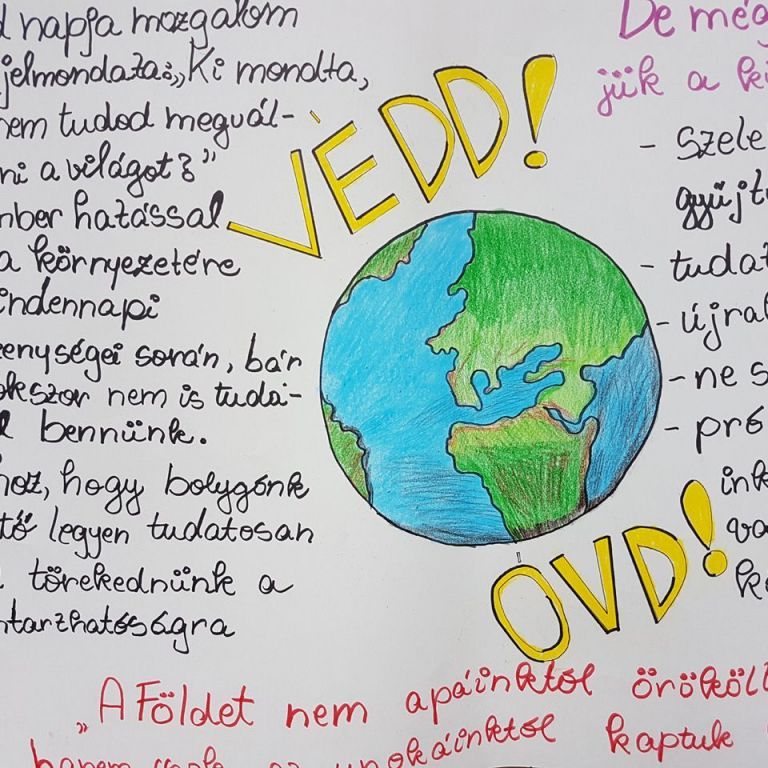 d napja mozgalom
jelmondata: „Ki mondta,
nem tudod megvál-
ni a világot?”
mber hatással
a környezetére
indennapi
enységei során, bár
okszor nem is tuda-
l bennünk.
hoz, hogy bolygónk
tő legyen tudatosan
törekednünk a
ntarthatóságra
VÉDD!
ÓVD!
De még
jük a kö
- szele
gyűjt
- tudat
- újra
- ne s
- pró
ink
va
kö
„A Földet nem apáinktól örököl
hanem csak az unokáinktól kaptuk